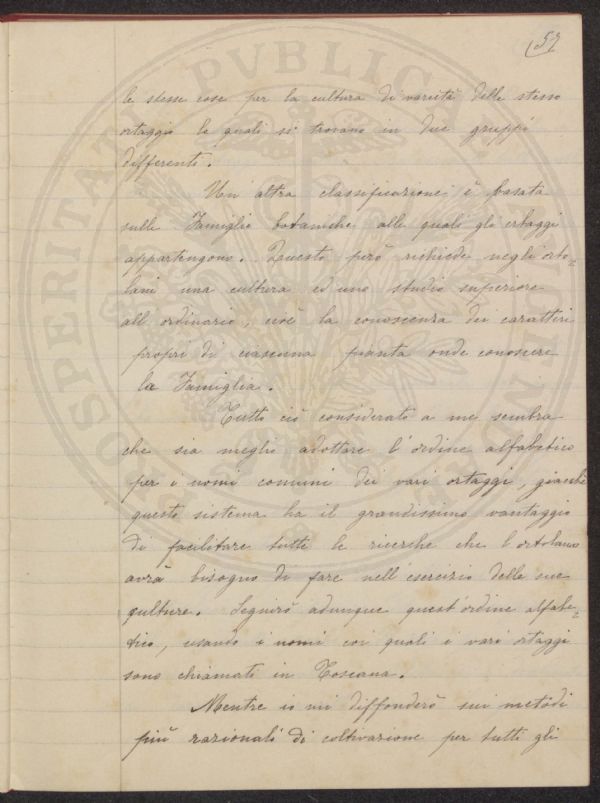 57
le stesse cose per la cultura di varietà dello stesso
ortaggio le quali si trovano in due gruppi
differenti.
Un'altra classificazione è basata
sulle Famiglie botaniche alle quali gli ortaggi
appartengono. Questo però richiede negli orto-
lani una cultura ed uno studio superiore
all'ordinario, cioè la conoscenza dei caratteri
propri di ciascuna pianta onde conoscere
la Famiglia.
Tutto ciò considerato a me sembra
che sia meglio adottare l'ordine alfabetico
per i nomi comuni dei vari ortaggi, giacchè
questo sistema ha il grandissimo vantaggio
di facilitare tutte le ricerche che l'ortolano
avrà bisogno di fare nell'esercizio delle sue
culture. Seguirò adunque quest'ordine alfabe-
tico, usando i nomi coi quali i vari ortaggi
sono chiamati in Toscana.
Mentre io mi diffonderò sui metodi
più razionali di coltivazione per tutti gli